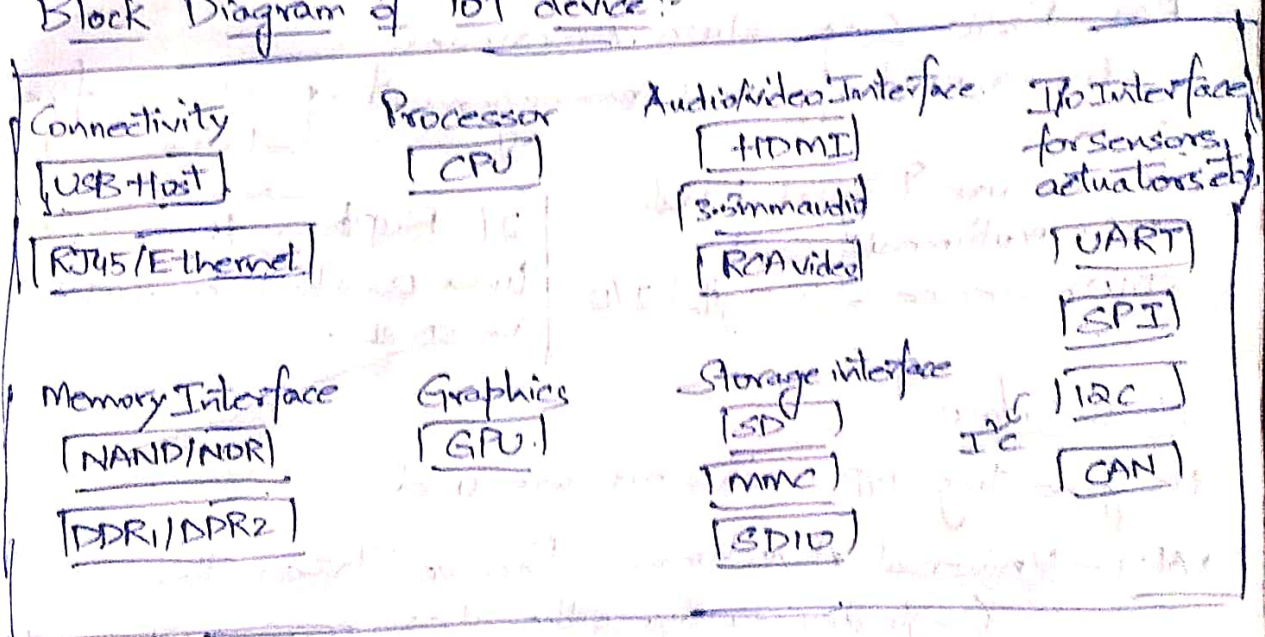 Block Diagram of IoT device:-
Connectivity
USB Host
RJ45/Ethernet
Processor
CPU
Audio/video Interface
HDMI
3.5mm audio
RCA video
I/o Interface
for sensors,
actuators etc,
UART
SPI
I2C
I²C
CAN
Memory Interface
NAND/NOR
DDR1/DDR2
Graphics
GPU
Storage interface
SD
MMC
SDIO